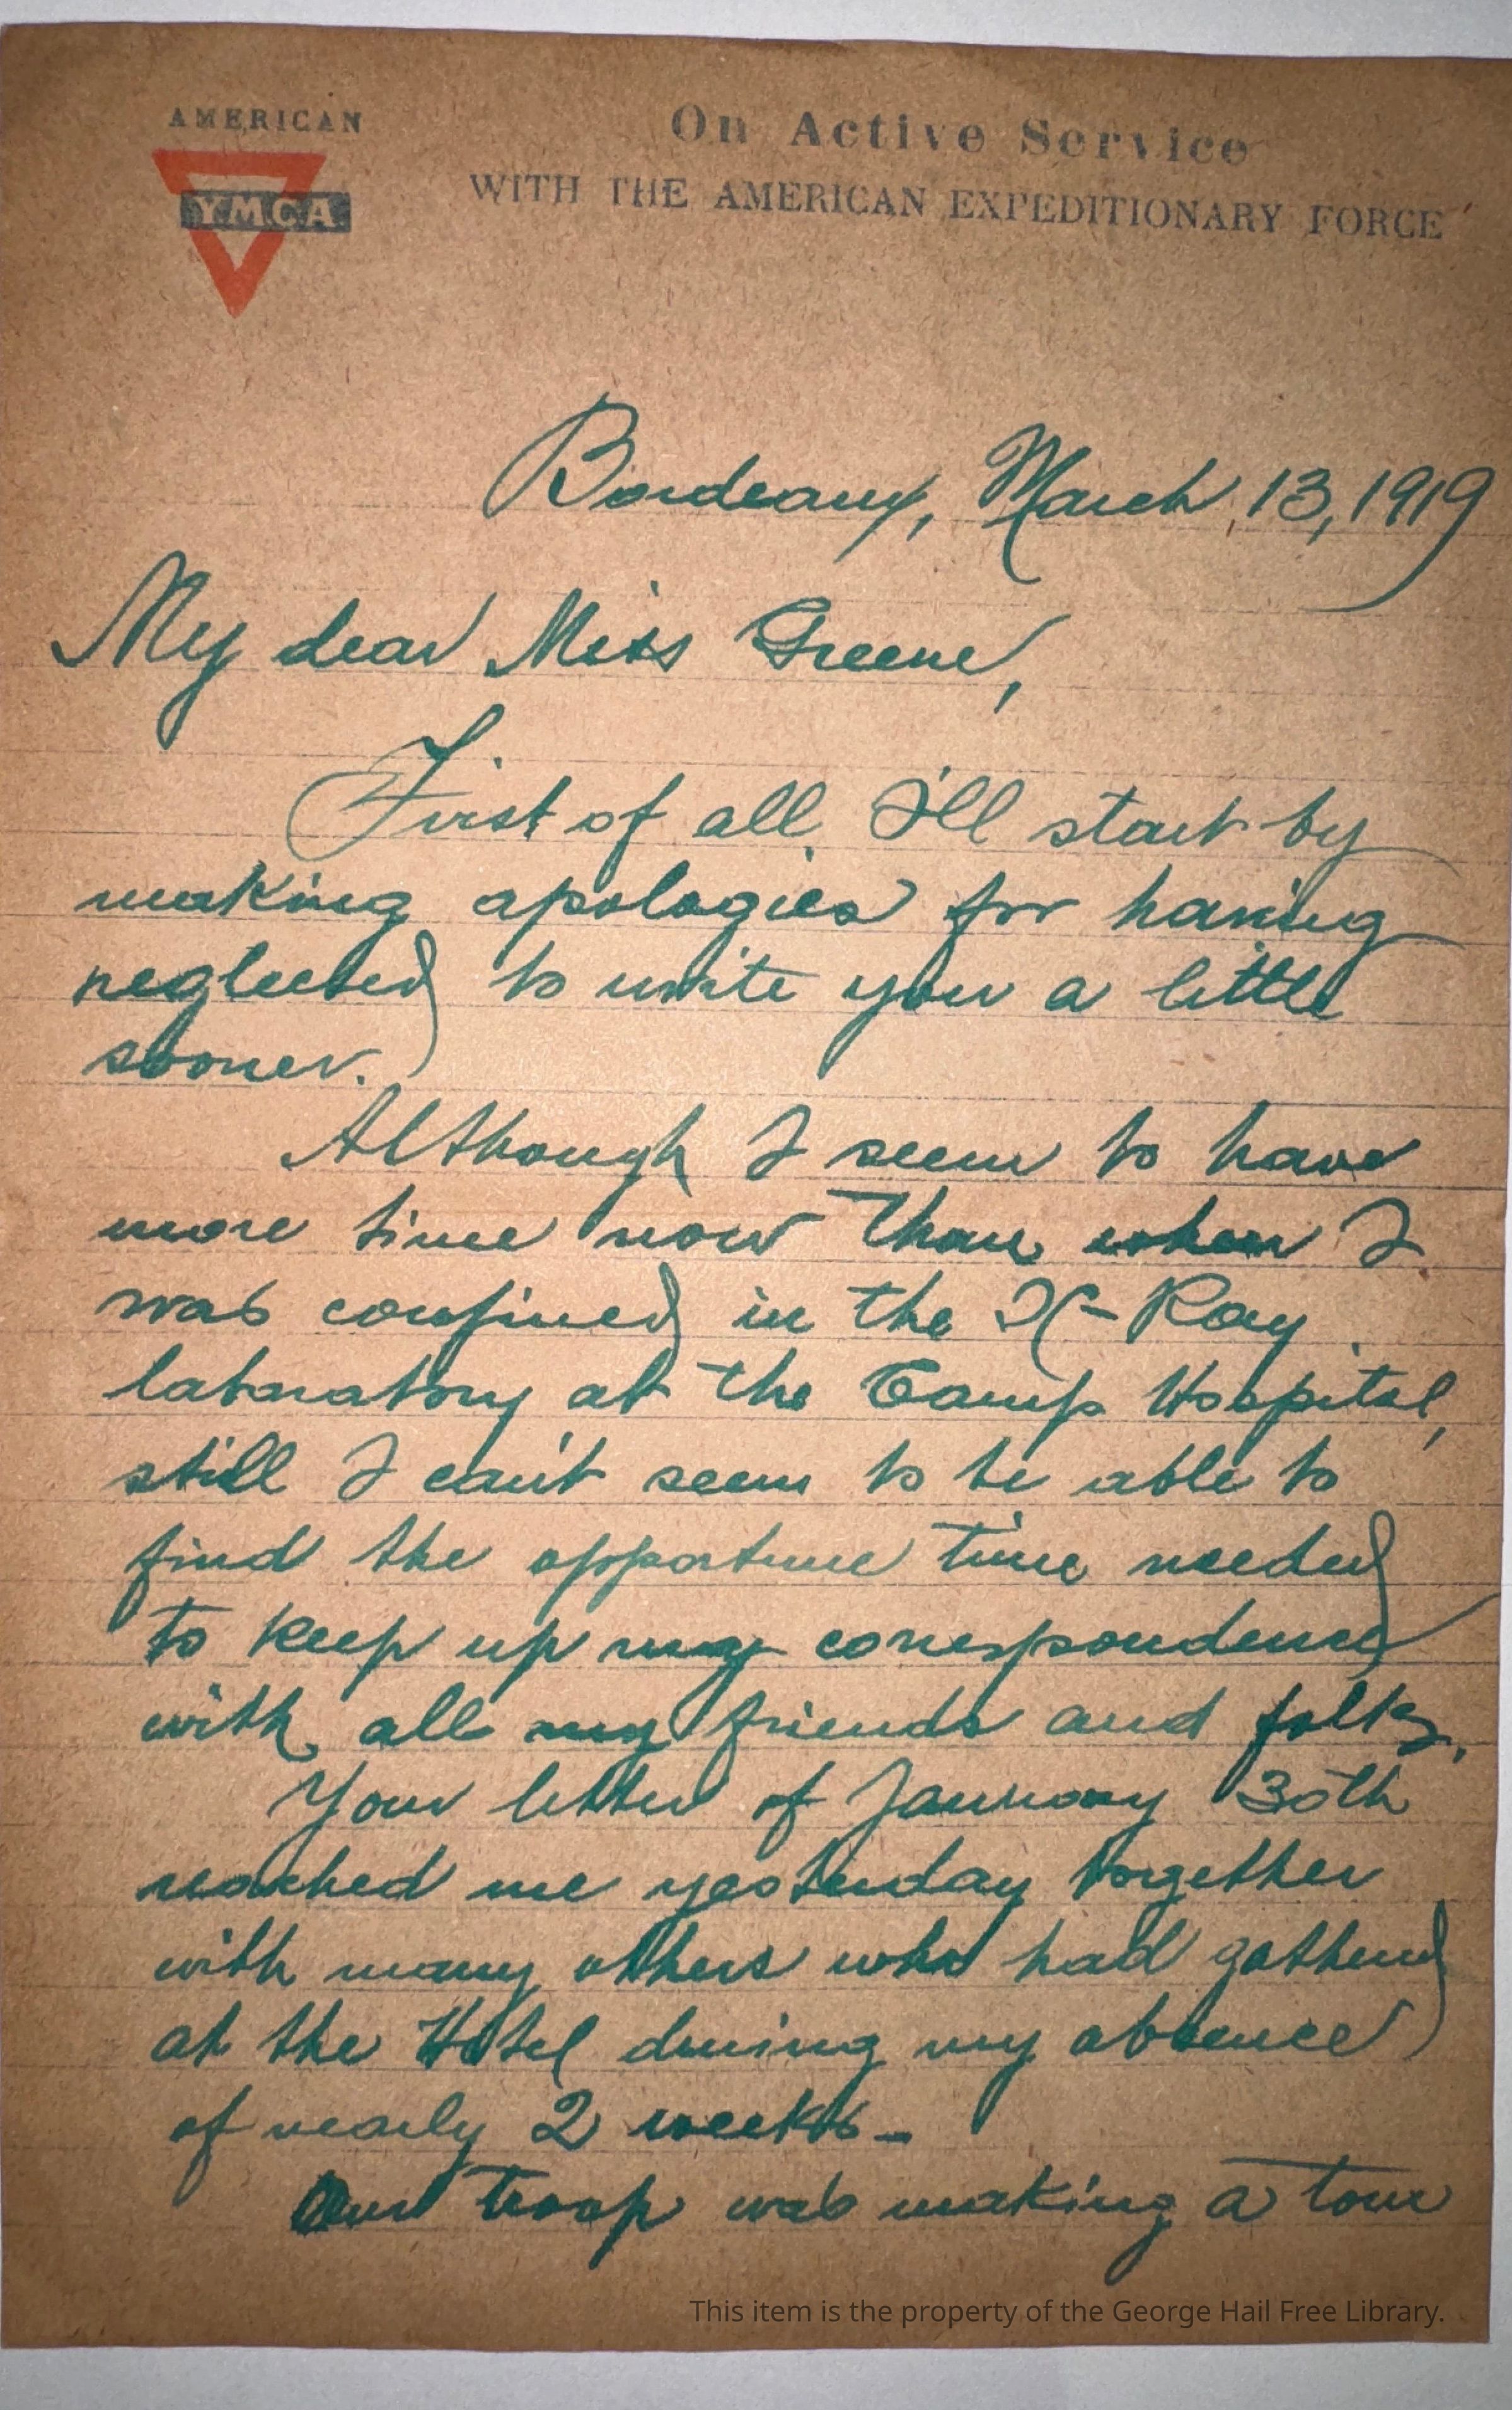 AMERICAN
YMCA
On Active Service
WITH THE AMERICAN EXPEDITIONARY FORCE
Bordeaux, March 13, 1919
My dear Miss Greene,
First of all I'll start by
making apologies for having
neglected to write you a little
sooner.
Although I seem to have
more time now than when I
was confined in the X-Ray
laboratory at the Camp Hospital,
still I can't seem to be able to
find the opportune time needed
to keep up my correspondence
with all my friends and folks.
Your letter of January 30th
reached me yesterday together
with many others who had gathered
at the Hotel during my absence
of nearly 2 weeks -
Our troop was making a tour
This item is the property of the George Hail Free Library.